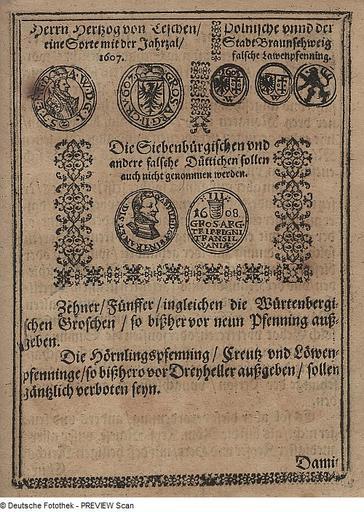 Herrn Hertzog von Teschen/
eine Sorte mit der Jahrzal/
1607.
Polnische vnnd der
Stadt Braunschweig
falsche Lawenpfenning.
Die Siebenbürgischen vnd
andere falsche Düttichen sollen
auch nicht genommen werden.
16 08
GROS ARG
TRIP REGNI
TRANSIL
VANIÆ
Zehner/Fünffer/ingleichen die Würtenbergi-
schen Groschen/ so bißher vor neun Pfenning auß-
geben.
Die Hörnlingspfenning/ Creutz vnd Löwen-
pfenninge/so bißhero vor Dreyheller außgeben/ sollen
gäntzlich verboten seyn.
Dami
© Deutsche Fotothek - PREVIEW Scan